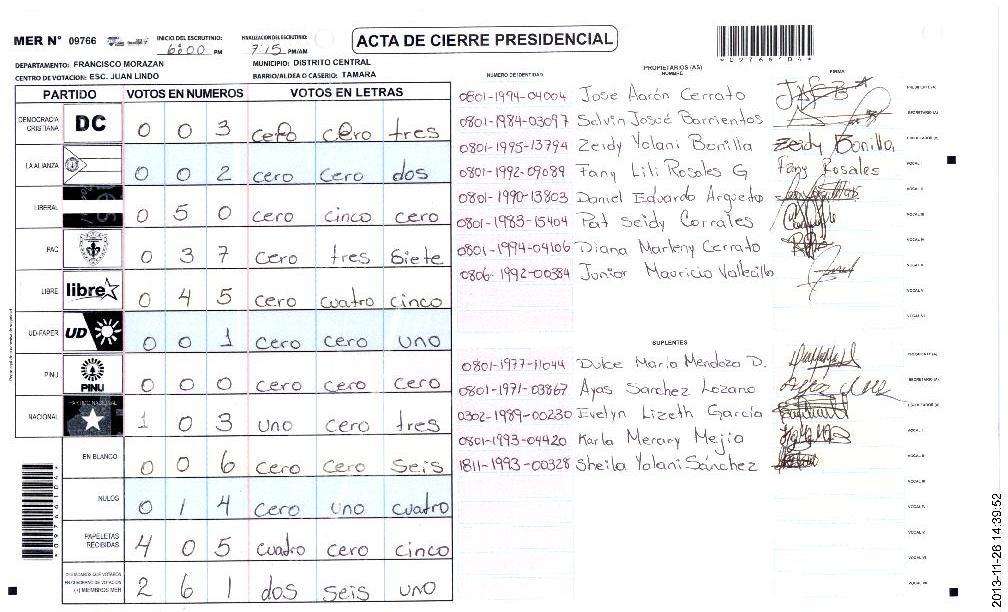 MER N° 09766 INICIO DEL ESCRUTINIO: 6:00 PM FINALIZACION DEL ESCRUTINIO: 7:15 PM/AM
ACTA DE CIERRE PRESIDENCIAL
*09766104*
DEPARTAMENTO: FRANCISCO MORAZAN MUNICIPIO: DISTRITO CENTRAL
CENTRO DE VOTACION: ESC. JUAN LINDO BARRIO/ALDEA O CASERIO: TAMARA
PARTIDO VOTOS EN NUMEROS VOTOS EN LETRAS
DEMOCRACIA CRISTIANA DC 0 0 3 cero cero tres
LA ALIANZA 0 0 2 cero cero dos
LIBERAL 0 5 0 cero cinco cero
PAC 0 3 7 cero tres siete
LIBRE libre 0 4 5 cero cuatro cinco
UD-FAPER UD 0 0 1 cero cero uno
PINU PINU 0 0 0 cero cero cero
NACIONAL 1 0 3 uno cero tres
EN BLANCO 0 0 6 cero cero seis
NULOS 0 1 4 cero uno cuatro
PAPELETAS RECIBIDAS 4 0 5 cuatro cero cinco
CIUDADANOS QUE VOTARON EN CUADERNO DE VOTACION (+) MIEMBROS MER 2 6 1 dos seis uno
PROPIETARIOS (AS)
NUMERO DE IDENTIDAD NOMBRE FIRMA
0801-1994-04004 Jose Aarón Cerrato PRESIDENTE (A)
0801-1984-03097 Selvin Josué Barrientos SECRETARIO (A)
0801-1995-13794 Zeidy Yolani Bonilla Zeidy Bonilla ESCRUTADOR (A)
0801-1992-09089 Fany Lili Rosales G Fany Rosales VOCAL I
0801-1990-13803 Daniel Eduardo Argueta VOCAL II
0801-1983-15404 Pat Seidy Corrales VOCAL III
0801-1994-04106 Diana Marleny Cerrato VOCAL IV
0806-1992-00384 Junior Mauricio Vallecillo VOCAL V
VOCAL VI
SUPLENTES
0801-1977-11044 Dulce Maria Mendoza D. PRESIDENTE (A)
0801-1971-03867 Ayas Sanchez Lozano SECRETARIO (A)
0302-1989-00230 Evelyn Lizeth García ESCRUTADOR (A)
0801-1993-04420 Karla Merary Mejia VOCAL I
1811-1993-00328 Sheila Yolani Sánchez VOCAL II
VOCAL III
VOCAL IV
VOCAL V
VOCAL VI
VOCAL VII
*09766104*
2013-11-26 14:39:52